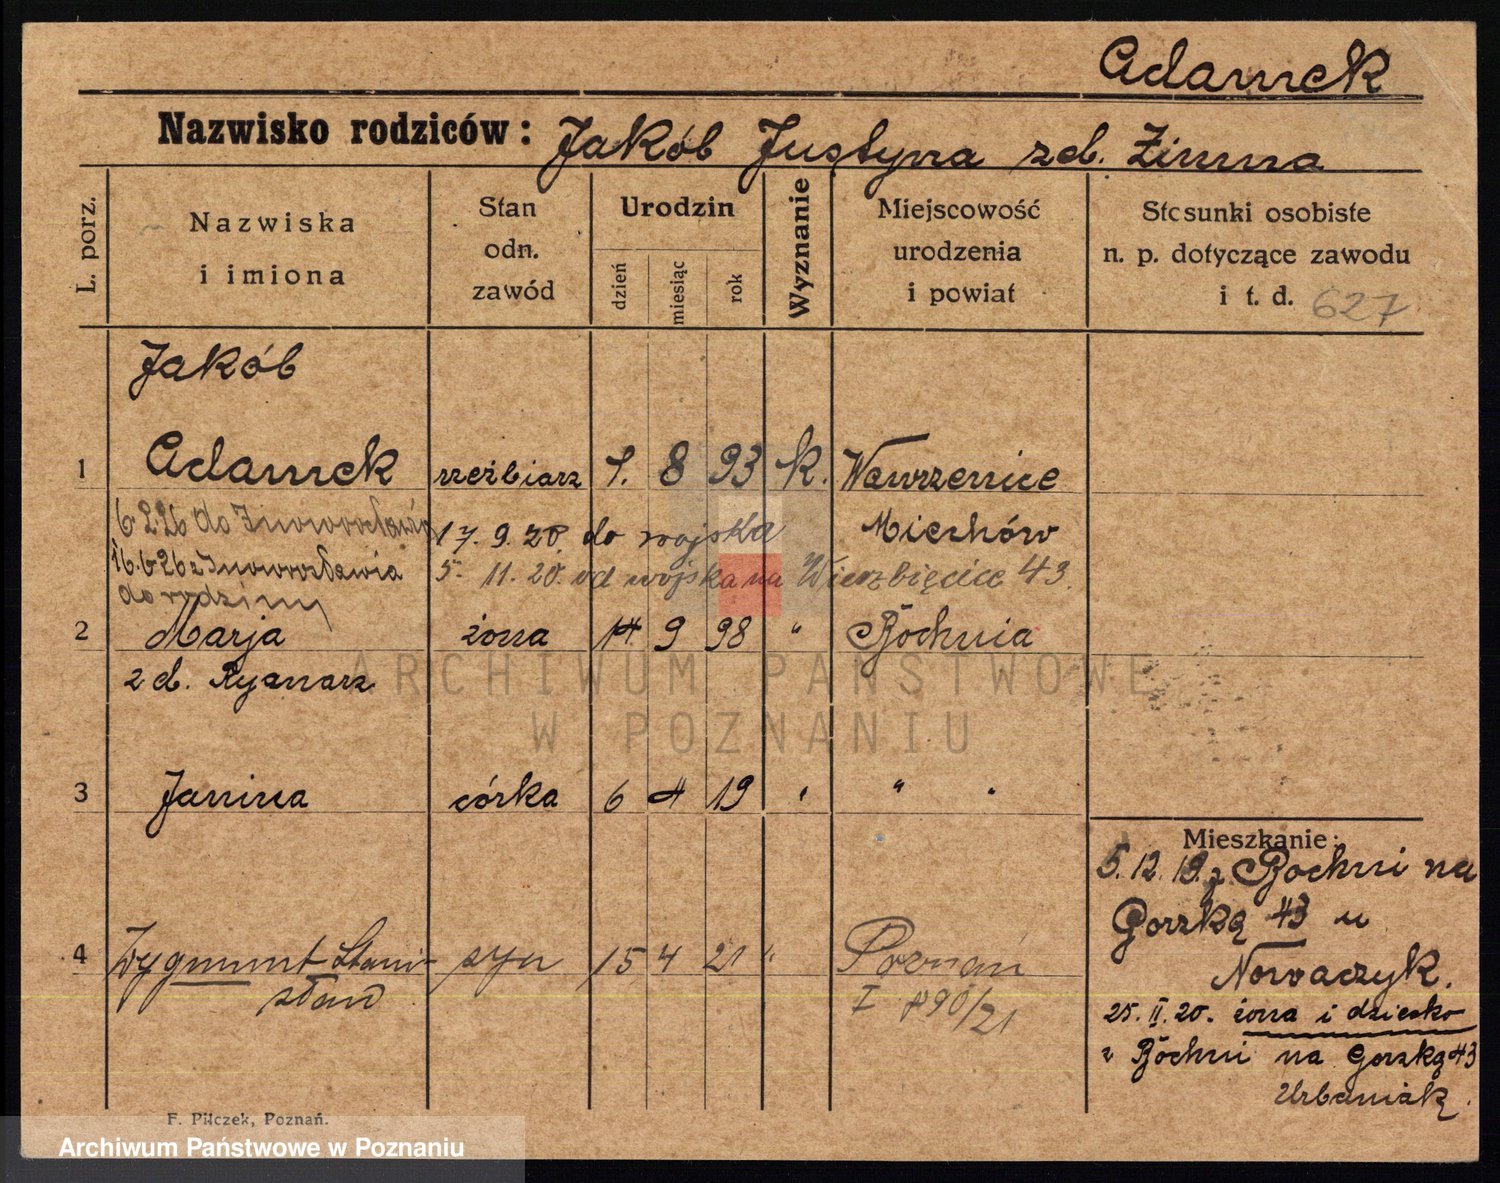 Adamek
Nazwisko rodziców: Jakób Justyna zd. Zimna
L. porz.
Nazwiska i imiona
Stan odn. zawód
Urodzin
dzień
miesiąc
rok
Wyznanie
Miejscowość urodzenia i powiat
Stosunki osobiste n. p. dotyczące zawodu i t. d. 627
Jakób
1 Adamek rzeźbiarz 1. 8 93 k. Wawrzenice
6.2.26 do Inowrocławia 17.9.20. do wojska Miechów
16.6.26 z Inowrocławia 5. 11. 20. od wojska na Wierzbięcice 43.
do rodziny
2 Marja żona 14 9 98 " Bochnia
zd. Ryanarz
ARCHIWUM PAŃSTWOWE
W POZNANIU
3 Janina córka 6 4 19 " " "
Mieszkanie:
5.12.19. z Bochni na
Gorzką 43 u
4 Zygmunt Stani- syn 15 4 21 " Poznań
sław
Nowaczyk.
I 890/21
25. II. 20. żona i dziecko
z Bochni na Gorzką 43
Urbaniak
F. Pilczek, Poznań.
Archiwum Państwowe w Poznaniu